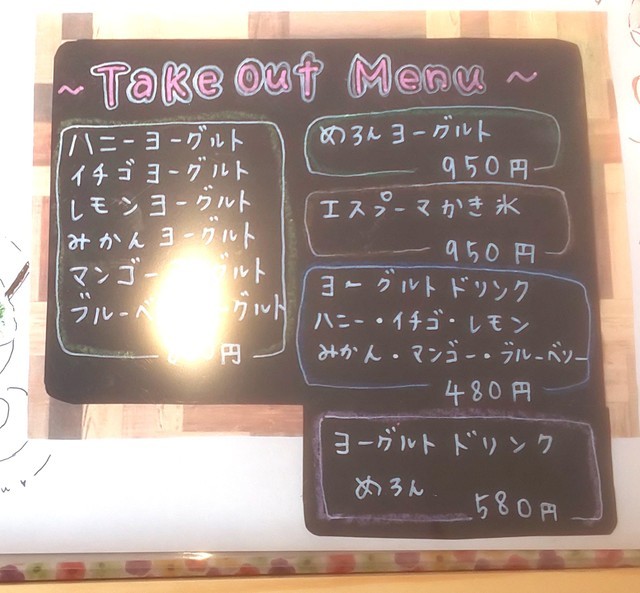 ~ Take Out Menu ~
ハニーヨーグルト
イチゴヨーグルト
レモンヨーグルト
みかんヨーグルト
マンゴー グルト
ブルーベ グルト
円
めろんヨーグルト
950円
エスプーマかき氷
950円
ヨーグルトドリンク
ハニー・イチゴ・レモン
みかん・マンゴー・ブルーベリー
480円
ヨーグルトドリンク
めろん
580円